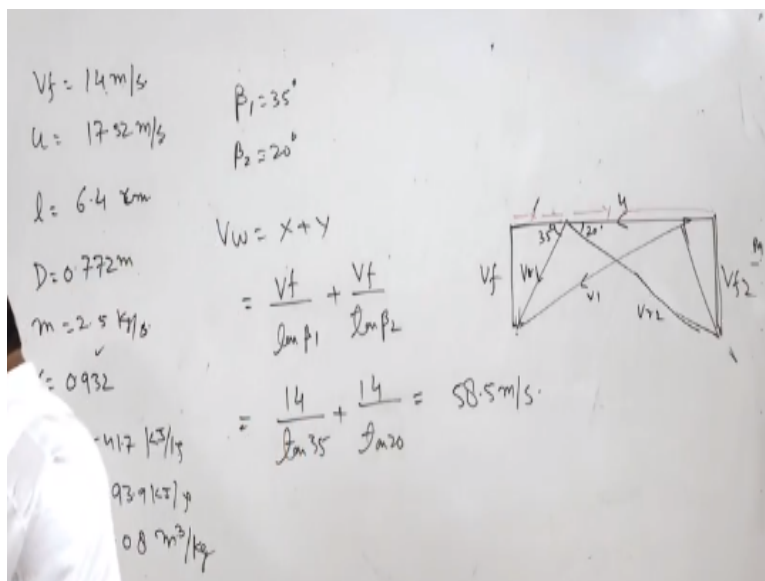 Vf = 14 m/s.
u = 17.52 m/s
l = 6.4 cm
D = 0.772 m
m = 2.5 kg/s
= 0.932
417 kJ/kg
93.9 kJ/kg
08 m³/kg
β₁ = 35°
β₂ = 20°
Vw = x + y
= Vf/tanβ₁ + Vf/tanβ₂
= 14/tan35 + 14/tan20 = 58.5 m/s.
u
35° 20°
Vf Vr1 V1 Vr2 Vf2